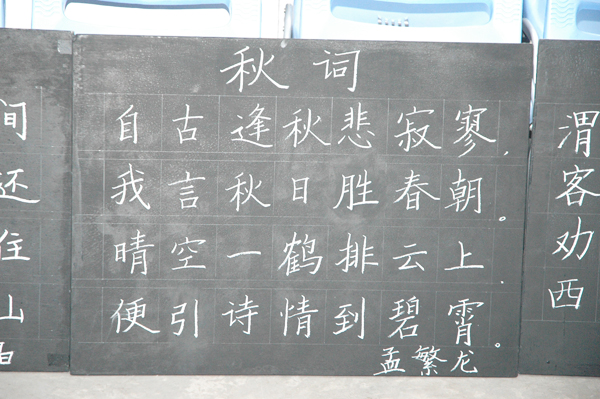 秋词
自古逢秋悲寂寥，
我言秋日胜春朝。
晴空一鹤排云上.
便引诗情到碧霄。
孟繁龙
间
还
住
山
渭
客
劝
西